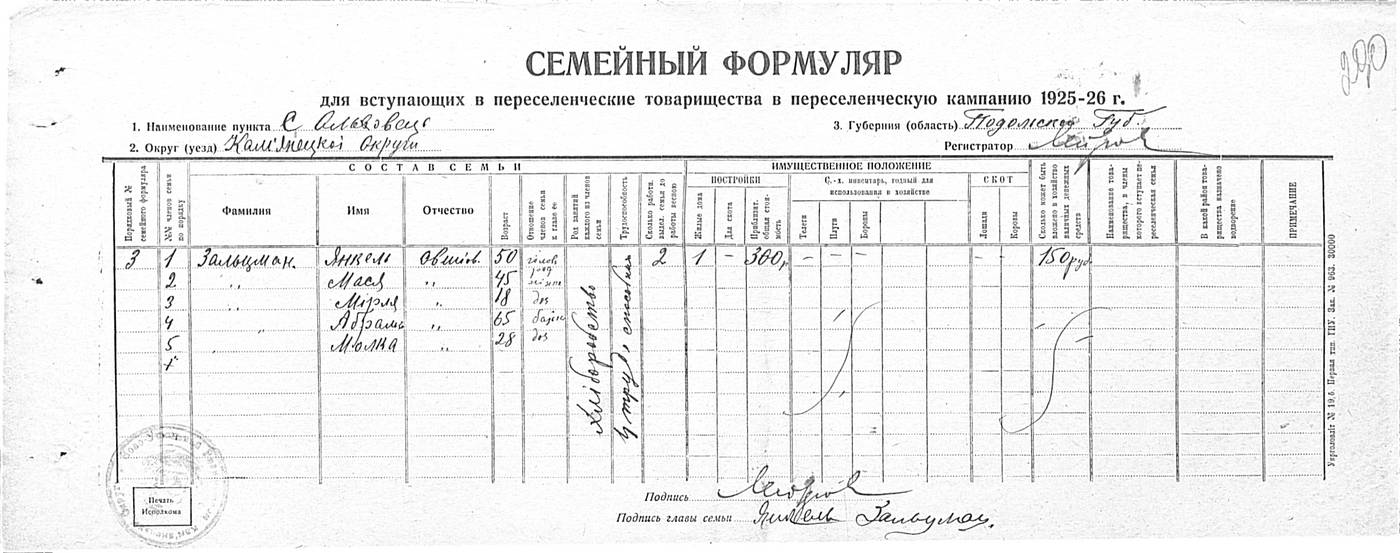 290
СЕМЕЙНЫЙ ФОРМУЛЯР
для вступающих в переселенческие товарищества в переселенческую кампанию 1925-26 г.
1. Наименование пункта С
3. Губерния (область) Подольской Губ.
2. Округ (уезд) Кам'янецкої Округи
Регистратор
Порядковый № семейного формуляра
СОСТАВ СЕМЬИ
№№ членов семьи по порядку
Фамилия
Имя
Отчество
Возраст
Отношение членов семьи к главе ее
Род занятий каждого из членов семьи
Трудоспособность
Сколько работн. выдел. семья до работы весною
ИМУЩЕСТВЕННОЕ ПОЛОЖЕНИЕ
ПОСТРОЙКИ
Жилые дома
Для скота
Приблизит. общая стоимость
С.-х. инвентарь, годный для использования в хозяйстве
Телеги
Плуги
Бороны
СКОТ
Лошади
Коровы
Сколько может быть вложено в хозяйство наличных денежных средств
Наименование товарищества, в члены которого вступает переселенческая семья
В какой район товарищества назначено водворение
ПРИМЕЧАНИЕ
3 1 Зальцман Янкель 50 голов 2 1 — 300 р — — — — — 150 руб.
2 „ Мася „ 45
3 „ Мірля „ 18 доч
4 „ Абрам „ 65
5 „ Молка „ 28 доч
Хліборобство
Печать Исполкома
Подпись
Подпись главы семьи Янкель Зальцман
Укрголовліт № 19,6 Первая тип. ГПУ. Зак. № 963. 30000